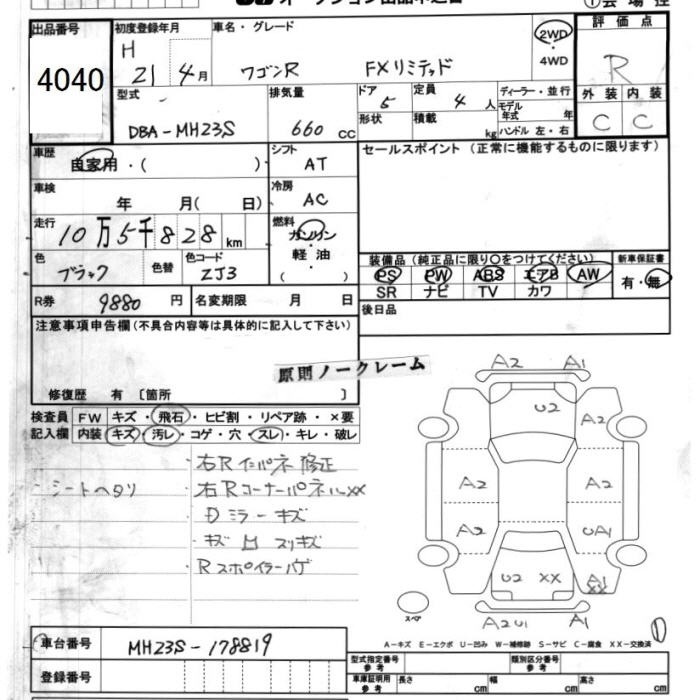 オークション出品申込書
①会場控
出品番号 4040
初度登録年月 H 21 4月
車名・グレード ワゴンR FXリミテッド
2WD・4WD
評価点 R
外装 内装
C C
型式 DBA-MH23S
排気量 660 cc
ドア 5
定員 4 人
形状
積載 kg
ディーラー・並行
モデル年式 年
ハンドル 左・右
車歴 自家用・( )
シフト AT
セールスポイント (正常に機能するものに限ります)
車検 年 月( 日)
冷房 AC
走行 10万5千828 km
燃料 ガソリン
軽・油
( )
色 ブラック
色替
色コード ZJ3
装備品 (純正品に限り○をつけてください)
新車保証書
PS PW ABS エアB AW
有・無
SR ナビ TV カワ
R券 9880 円
名変期限 月 日
後日品
注意事項申告欄 (不具合内容等は具体的に記入して下さい)
原則ノークレーム
修復歴 有 〔箇所 〕
検査員 FW キズ・飛石・ヒビ割・リペア跡・×要
記入欄 内装 キズ・汚レ・コゲ・穴・スレ・キレ・破レ
右Rインパネ修正
シートヘタリ
右RコーナーパネルXX
Dミラーキズ
キズ凹スリキズ
Rスポイラーハゲ
A2 A1
U2 A2
A2 A2
A2 UA1
U2 XX A1 XX
スペア
A2U1 A1
A-キズ E-エクボ U-凹み W-補修跡 S-サビ C-腐食 XX-交換済
車台番号 MH23S-178819
登録番号
型式指定番号 参考
類別区分番号 参考
車庫証明用 参考 長さ cm 幅 cm 高さ cm